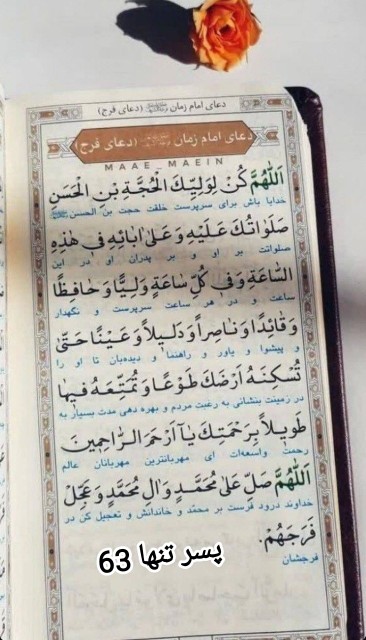 دعای امام زمان (دعای فرج)
دعای امام زمان (دعای فرج)
MAAE MAEIN
اَللّٰهُمَّ كُنْ لِوَلِيِّكَ الْحُجَّةِ بْنِ الْحَسَنِ
خدایا باش برای سرپرست خلقت حجت بن الحسن
صَلَوَاتُكَ عَلَيْهِ وَعَلىٰ اٰبائِهِ فِى هٰذِهِ
صلواتت بر او و بر پدران او در این
السَّاعَةِ وَفِى كُلِّ سَاعَةٍ وَلِيًّا وَحَافِظًا
ساعت و در هر ساعت سرپرست و نگهدار
وَقَائِدًا وَنَاصِرًا وَدَلِيلاً وَعَيْنًا حَتّىٰ
و پیشوا و یاور و راهنما و دیده‌بان تا او را
تُسْكِنَهُ اَرْضَكَ طَوْعًا وَتُمَتِّعَهُ فِيهَا
در زمینت بنشانی به رغبت مردم و بهره دهی مدت بسیار به
طَوِيلاً بِرَحْمَتِكَ يَا اَرْحَمَ الرَّاحِمِينَ
رحمت واسعه‌ات ای مهربانترین مهربانان عالم
اَللّٰهُمَّ صَلِّ عَلىٰ مُحَمَّدٍ وَاٰلِ مُحَمَّدٍ وَعَجِّلْ
خداوند درود فرست بر محمّد و خاندانش و تعجیل کن در
فَرَجَهُمْ.
فرجشان
پسر تنها 63